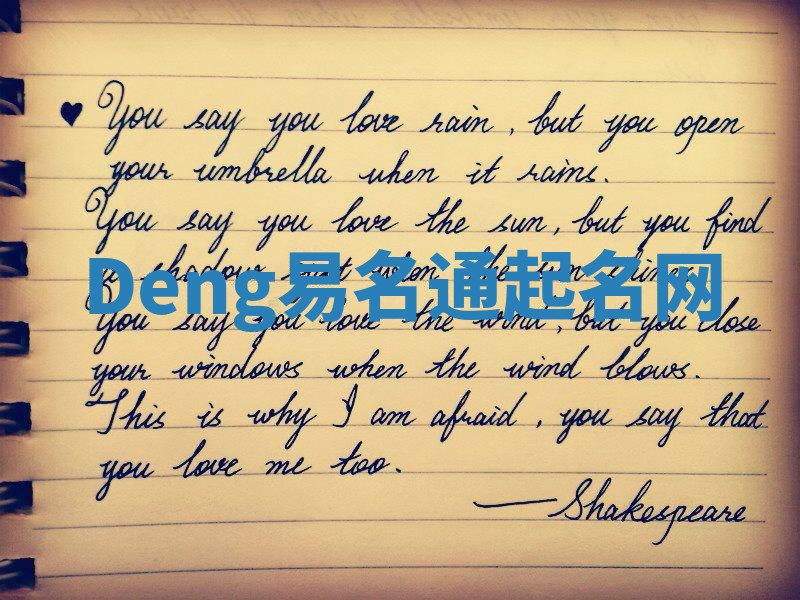 You say you love rain, but you open
your umbrella when it rains.
You say you love the sun, but you find
a shadow spot when the sun shines.
Deng易名通起名网
You say you love the wind, but you close
your windows when the wind blows.
This is why I am afraid, you say that
you love me too.
—Shakespeare